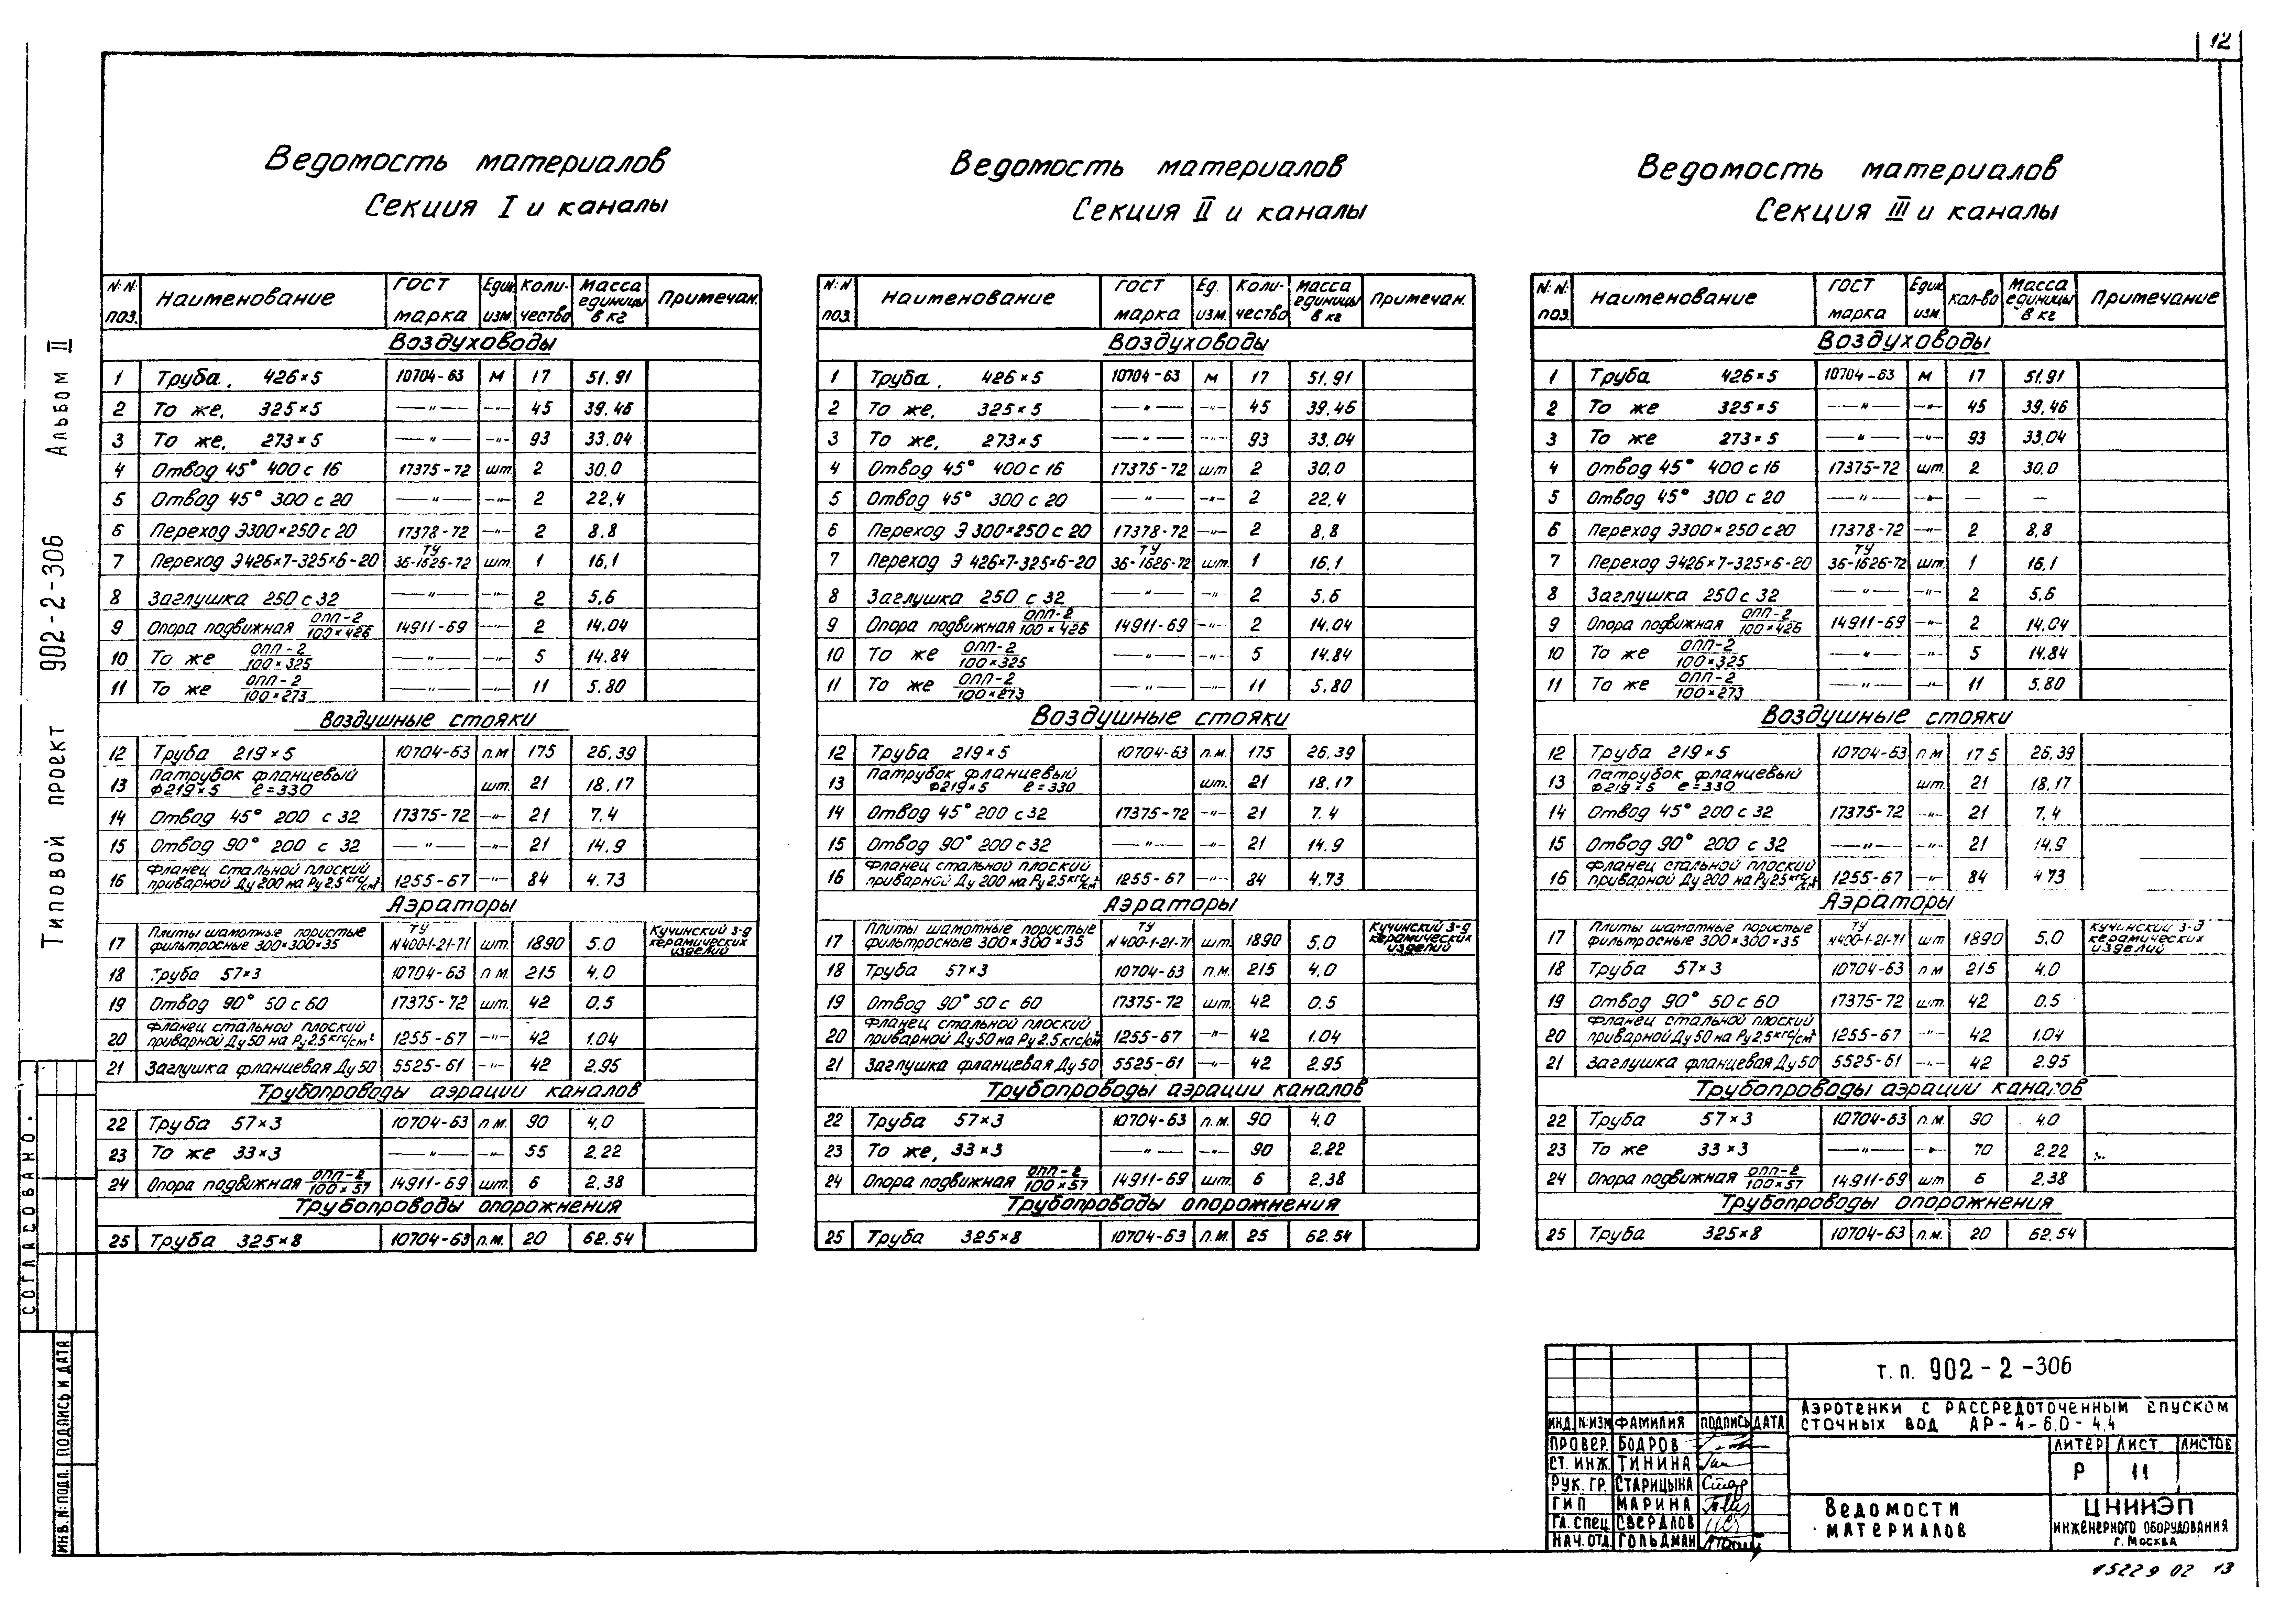 12
Типовой проект 902-2-306 Альбом II
СОГЛАСОВАНО.
ИНВ.№ПОДЛ. ПОДПИСЬ И ДАТА
Ведомость материалов
Секция I и каналы
№:№ поз. Наименование ГОСТ марка Един. изм. Количество Масса единицы в кг Примечан.
Воздуховоды
1 Труба, 426×5 10704-63 м 17 51.91
2 То же, 325×5 —"— -"- 45 39.46
3 То же, 273×5 —"— -"- 93 33.04
4 Отвод 45° 400 с 16 17375-72 шт. 2 30.0
5 Отвод 45° 300 с 20 —"— -"- 2 22.4
6 Переход Э300×250 с 20 17378-72 -"- 2 8.8
7 Переход Э426×7-325×6-20 ТУ 36-1626-72 шт. 1 16.1
8 Заглушка 250 с 32 —"— -"- 2 5.6
9 Опора подвижная ОПП-2/100×426 14911-69 -"- 2 14.04
10 То же ОПП-2/100×325 —"— -"- 5 14.84
11 То же ОПП-2/100×273 —"— -"- 11 5.80
Воздушные стояки
12 Труба 219×5 10704-63 п.м 175 26.39
13 Патрубок фланцевый
ф219×5 ℓ=330 шт. 21 18.17
14 Отвод 45° 200 с 32 17375-72 -"- 21 7.4
15 Отвод 90° 200 с 32 —"— -"- 21 14.9
16 Фланец стальной плоский
приварной Ду200 на Ру2.5 кгс/см² 1255-67 -"- 84 4.73
Аэраторы
17 Плиты шамотные пористые
фильтросные 300×300×35 ТУ N400-1-21-71 шт. 1890 5.0 Кучинский з-д керамических изделий
18 Труба 57×3 10704-63 п.м. 215 4.0
19 Отвод 90° 50 с 60 17375-72 шт. 42 0.5
20 Фланец стальной плоский
приварной Ду50 на Ру2.5 кгс/см² 1255-67 -"- 42 1.04
21 Заглушка фланцевая Ду50 5525-61 -"- 42 2.95
Трубопроводы аэрации каналов
22 Труба 57×3 10704-63 п.м. 90 4.0
23 То же 33×3 —"— -"- 55 2.22
24 Опора подвижная ОПП-2/100×57 14911-69 шт. 6 2.38
Трубопроводы опорожнения
25 Труба 325×8 10704-63 п.м. 20 62.54
Ведомость материалов
Секция II и каналы
№:№ поз. Наименование ГОСТ марка Ед. изм. Количество Масса единицы в кг Примечан.
Воздуховоды
1 Труба, 426×5 10704-63 м 17 51.91
2 То же, 325×5 —"— -"- 45 39.46
3 То же, 273×5 —"— -"- 93 33.04
4 Отвод 45° 400 с 16 17375-72 шт 2 30.0
5 Отвод 45° 300 с 20 —"— -"- 2 22.4
6 Переход Э 300×250 с 20 17378-72 -"- 2 8.8
7 Переход Э 426×7-325×6-20 ТУ 36-1626-72 шт. 1 16.1
8 Заглушка 250 с 32 —"— -"- 2 5.6
9 Опора подвижная ОПП-2/100×426 14911-69 -"- 2 14.04
10 То же ОПП-2/100×325 —"— -"- 5 14.84
11 То же ОПП-2/100×273 —"— -"- 11 5.80
Воздушные стояки
12 Труба 219×5 10704-63 п.м. 175 26.39
13 Патрубок фланцевый
ф219×5 ℓ=330 шт. 21 18.17
14 Отвод 45° 200 с 32 17375-72 -"- 21 7.4
15 Отвод 90° 200 с 32 —"— -"- 21 14.9
16 Фланец стальной плоский
приварной Ду200 на Ру2.5 кгс/см² 1255-67 -"- 84 4.73
Аэраторы
17 Плиты шамотные пористые
фильтросные 300×300×35 ТУ N400-1-21-71 шт. 1890 5.0 Кучинский з-д керамических изделий
18 Труба 57×3 10704-63 п.м. 215 4.0
19 Отвод 90° 50 с 60 17375-72 шт. 42 0.5
20 Фланец стальной плоский
приварной Ду50 на Ру2.5 кгс/см² 1255-67 -"- 42 1.04
21 Заглушка фланцевая Ду50 5525-61 -"- 42 2.95
Трубопроводы аэрации каналов
22 Труба 57×3 10704-63 п.м. 90 4.0
23 То же, 33×3 —"— -"- 90 2.22
24 Опора подвижная ОПП-2/100×57 14911-69 шт. 6 2.38
Трубопроводы опорожнения
25 Труба 325×8 10704-63 п.м. 25 62.54
Ведомость материалов
Секция III и каналы
№:№: поз. Наименование ГОСТ марка Един. изм. Кол-во Масса единицы в кг Примечание
Воздуховоды
1 Труба 426×5 10704-63 м 17 51.91
2 То же 325×5 —"— -"- 45 39.46
3 То же 273×5 —"— -"- 93 33.04
4 Отвод 45° 400 с 16 17375-72 шт. 2 30.0
5 Отвод 45° 300 с 20 —"— -"- — —
6 Переход Э300×250 с 20 17378-72 -"- 2 8.8
7 Переход Э426×7-325×6-20 ТУ 36-1626-72 шт. 1 16.1
8 Заглушка 250 с 32 —"— -"- 2 5.6
9 Опора подвижная ОПП-2/100×426 14911-69 -"- 2 14.04
10 То же ОПП-2/100×325 —"— -"- 5 14.84
11 То же ОПП-2/100×273 —"— -"- 11 5.80
Воздушные стояки
12 Труба 219×5 10704-63 п.м 175 26.39
13 Патрубок фланцевый
ф219×5 ℓ=330 шт. 21 18.17
14 Отвод 45° 200 с 32 17375-72 -"- 21 7.4
15 Отвод 90° 200 с 32 —"— -"- 21 14.9
16 Фланец стальной плоский
приварной Ду200 на Ру2.5 кгс/см² 1255-67 -"- 84 4.73
Аэраторы
17 Плиты шамотные пористые
фильтросные 300×300×35 ТУ N400-1-21-71 шт 1890 5.0 Кучинский з-д керамических изделий
18 Труба 57×3 10704-63 п.м 215 4.0
19 Отвод 90° 50 с 60 17375-72 шт. 42 0.5
20 Фланец стальной плоский
приварной Ду50 на Ру2.5 кгс/см² 1255-67 -"- 42 1.04
21 Заглушка фланцевая Ду50 5525-61 -"- 42 2.95
Трубопроводы аэрации каналов
22 Труба 57×3 10704-63 п.м. 90 4.0
23 То же 33×3 —"— -"- 70 2.22
24 Опора подвижная ОПП-2/100×57 14911-69 шт 6 2.38
Трубопроводы опорожнения
25 Труба 325×8 10704-63 п.м. 20 62.54
Т.П. 902-2-306
АЭРОТЕНКИ С РАССРЕДОТОЧЕННЫМ ВПУСКОМ
СТОЧНЫХ ВОД АР-4-6.0-4.4
ИНД №:ИЗМ ФАМИЛИЯ ПОДПИСЬ ДАТА
ПРОВЕР. БОДРОВ
СТ. ИНЖ. ТИНИНА
РУК. ГР. СТАРИЦЫНА
ГИП МАРИНА
ГЛ. СПЕЦ СВЕРДЛОВ
НАЧ. ОТД. ГОЛЬДМАН
ЛИТЕР ЛИСТ ЛИСТОВ
Р 11
ВЕДОМОСТИ
МАТЕРИАЛОВ
ЦНИИЭП
ИНЖЕНЕРНОГО ОБОРУДОВАНИЯ
Г. МОСКВА
15229 02 13